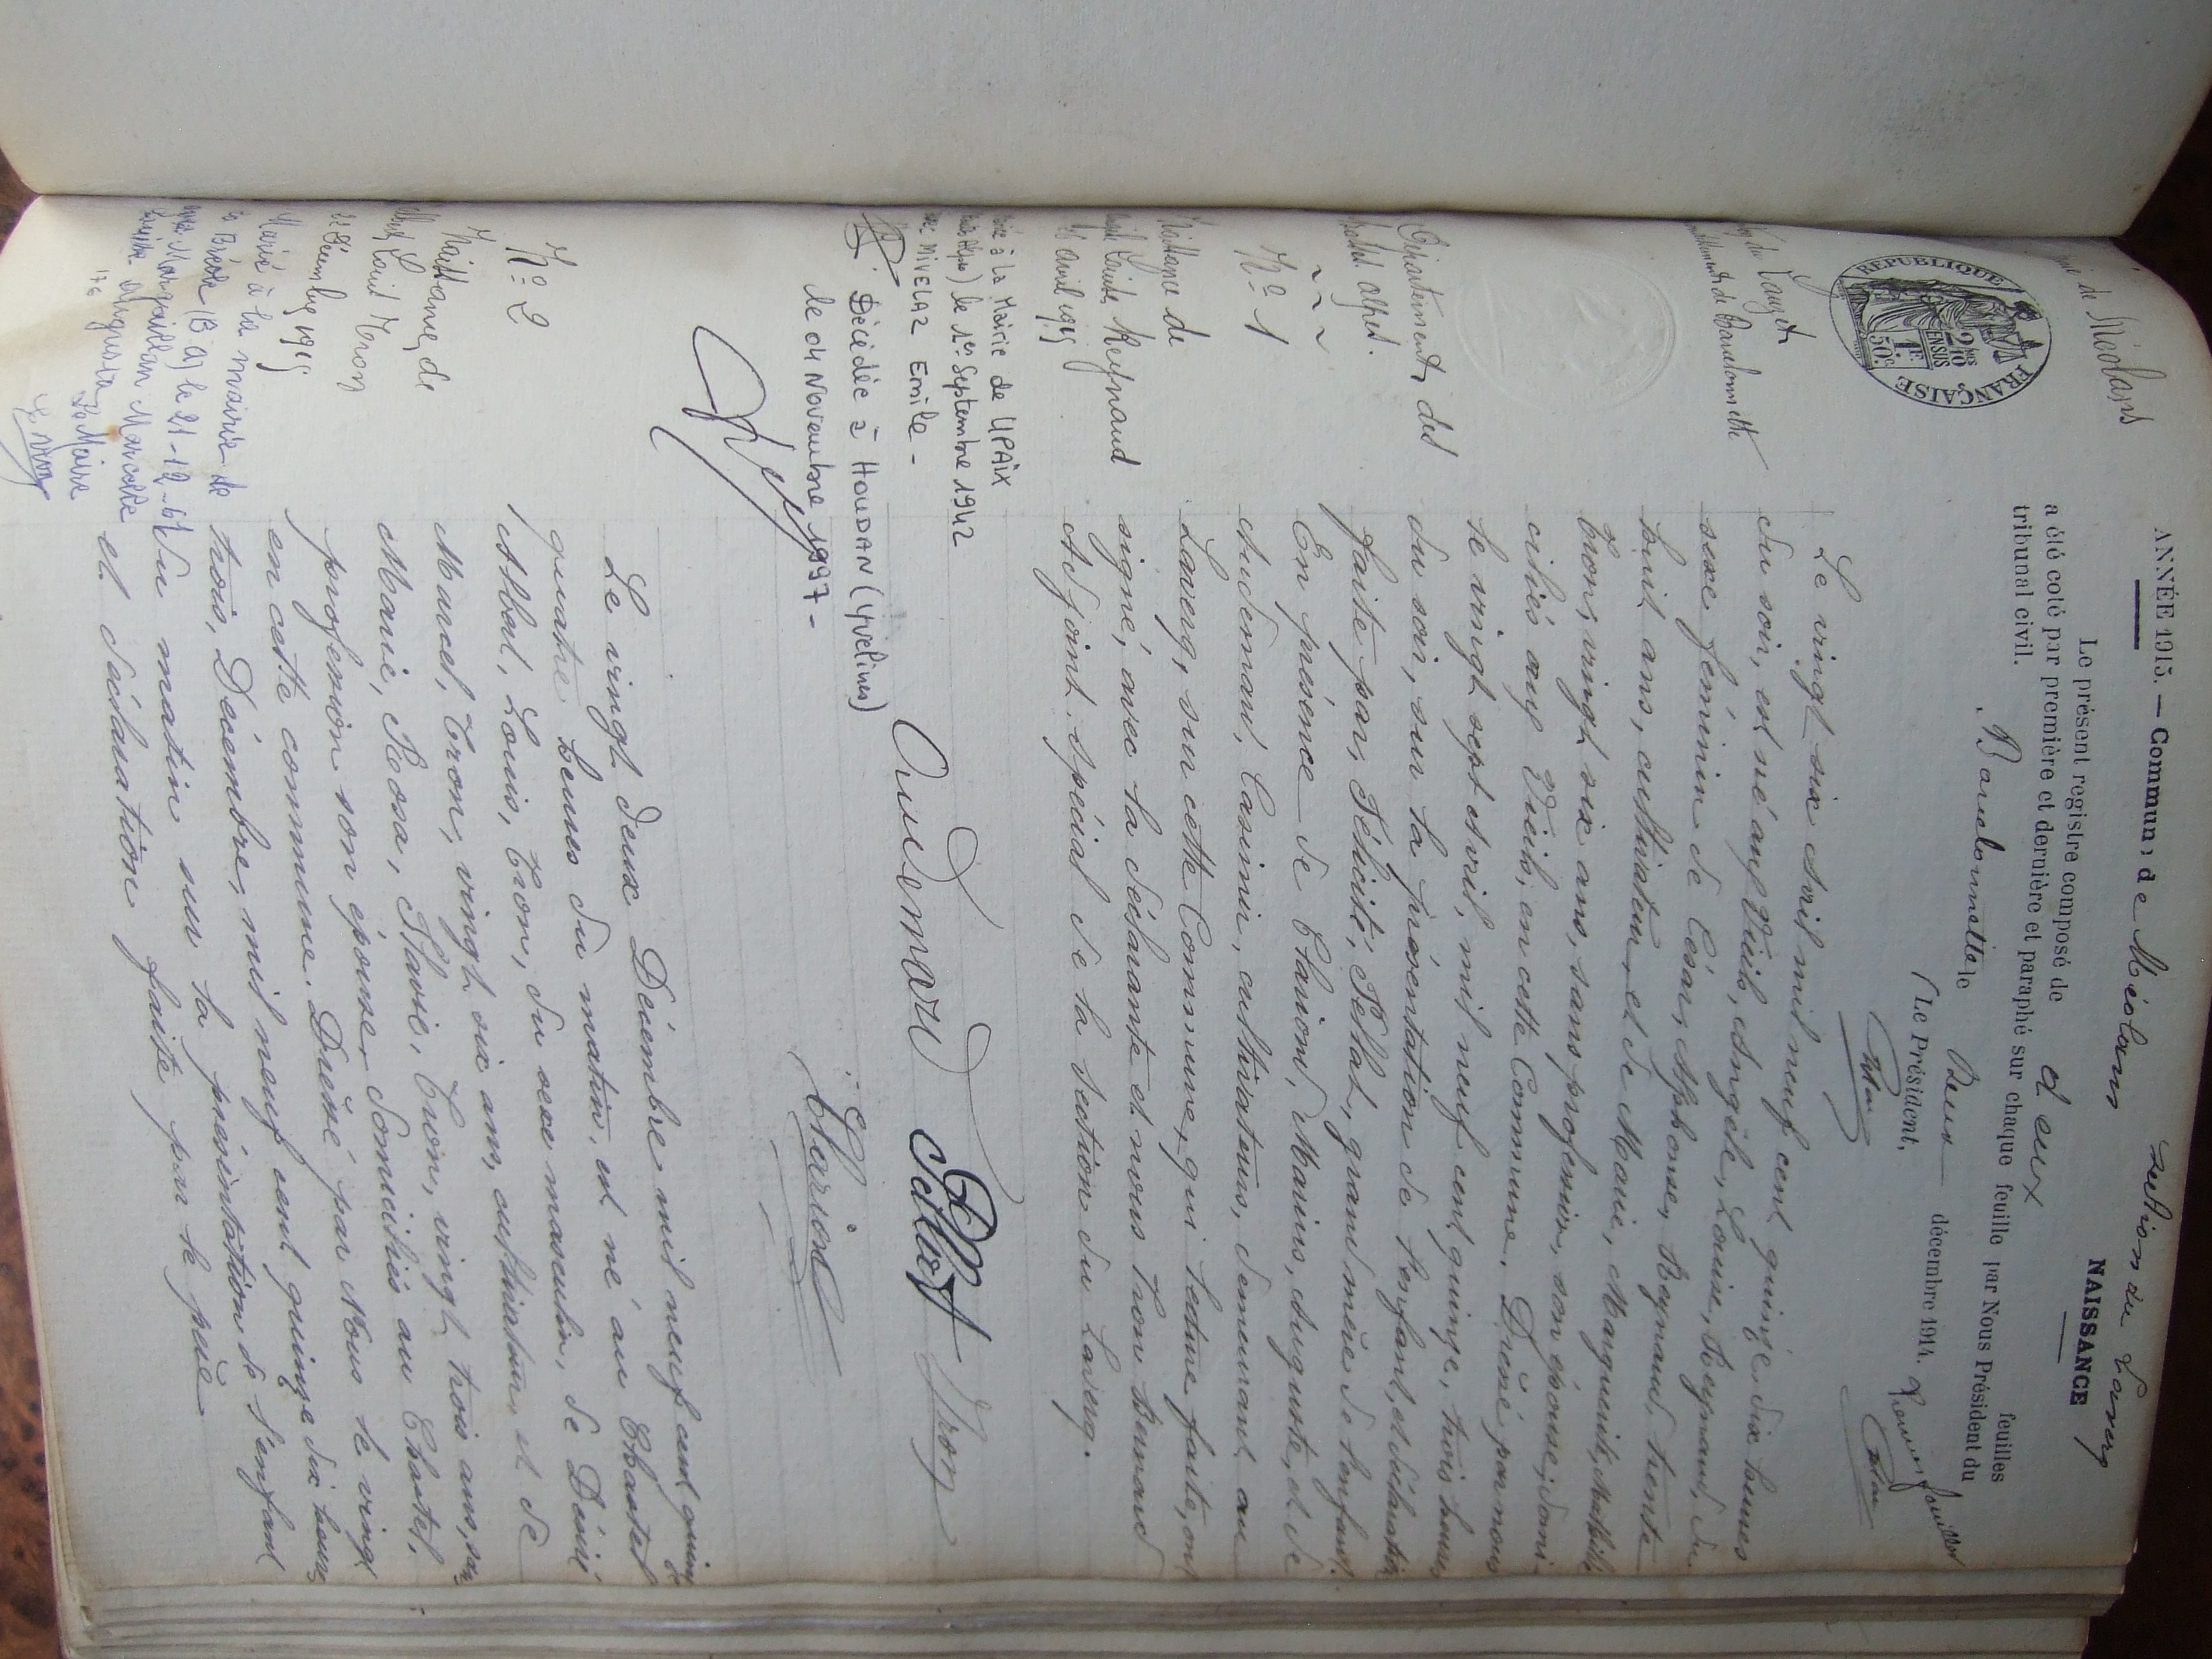 ANNÉE 1915. — Commune de Méolans section du Laverq
NAISSANCE
Le présent registre composé de deux feuilles
a été coté par première et dernière et paraphé sur chaque feuille par Nous Président du
tribunal civil.
Barcelonnette le deux décembre 1914.
Le Président,
de Méolans
RÉPUBLIQUE FRANÇAISE
1F 50c
2/10 EN SUS
du Lauzet
de Barcelonnette
Département des
Basses Alpes.
N° 1
Naissance de
Louise Reynaud
avril 1915
à la Mairie de UPAÏX
le 1er Septembre 1942
NIVELAZ Emile -
Décédée à HOUDAN (Yvelines)
le 04 Novembre 1997 -
Le vingt six Avril mil neuf cent quinze, dix heures
du soir, est né aux Vieils, Angèle, Louise, Reynaud, du
sexe féminin de César, Alphonse, Reynaud, trente
huit ans, cultivateur, et de Marie, Marguerite, Mathilde
Tron, vingt six ans, sans profession, son épouse, domi-
ciliés aux Vieils, en cette Commune. Dressé par nous
le vingt sept Avril, mil neuf cent quinze, trois heures
du soir, sur la présentation de l'enfant, et déclaration
faite par, Félicité, Pellat, grand mère de l'enfant.
En présence de Clariond, Marius, Auguste, et de
Audemard, Casimir, cultivateurs, demeurant au
Laverq, sur cette Commune, qui lecture faite, ont
signé, avec la déclarante et nous Tron Bernard
Adjoint spécial de la section du Laverq.
Audemard Pellat Tron
Clariond
N° 2
Naissance de
Albert Louis Tron
22 Décembre 1915
Marié à la mairie de
la Bréole (B A) le 21-12-61
avec Marcelle
Augusta
Le Maire
Le vingt deux Décembre mil neuf cent quinze
quatre heures du matin, est né au Chastel
Albert, Louis, Tron, du sexe masculin, de Désiré
Marcel, Tron, vingt six ans, cultivateur, et de
Marie, Rosa, Flavie, Tron, vingt trois ans, sans
profession son épouse, domiciliés au Chastel,
en cette commune. Dressé par Nous le vingt
trois, Décembre, mil neuf cent quinze dix heures
du matin sur la présentation de l'enfant
et déclaration faite par le père